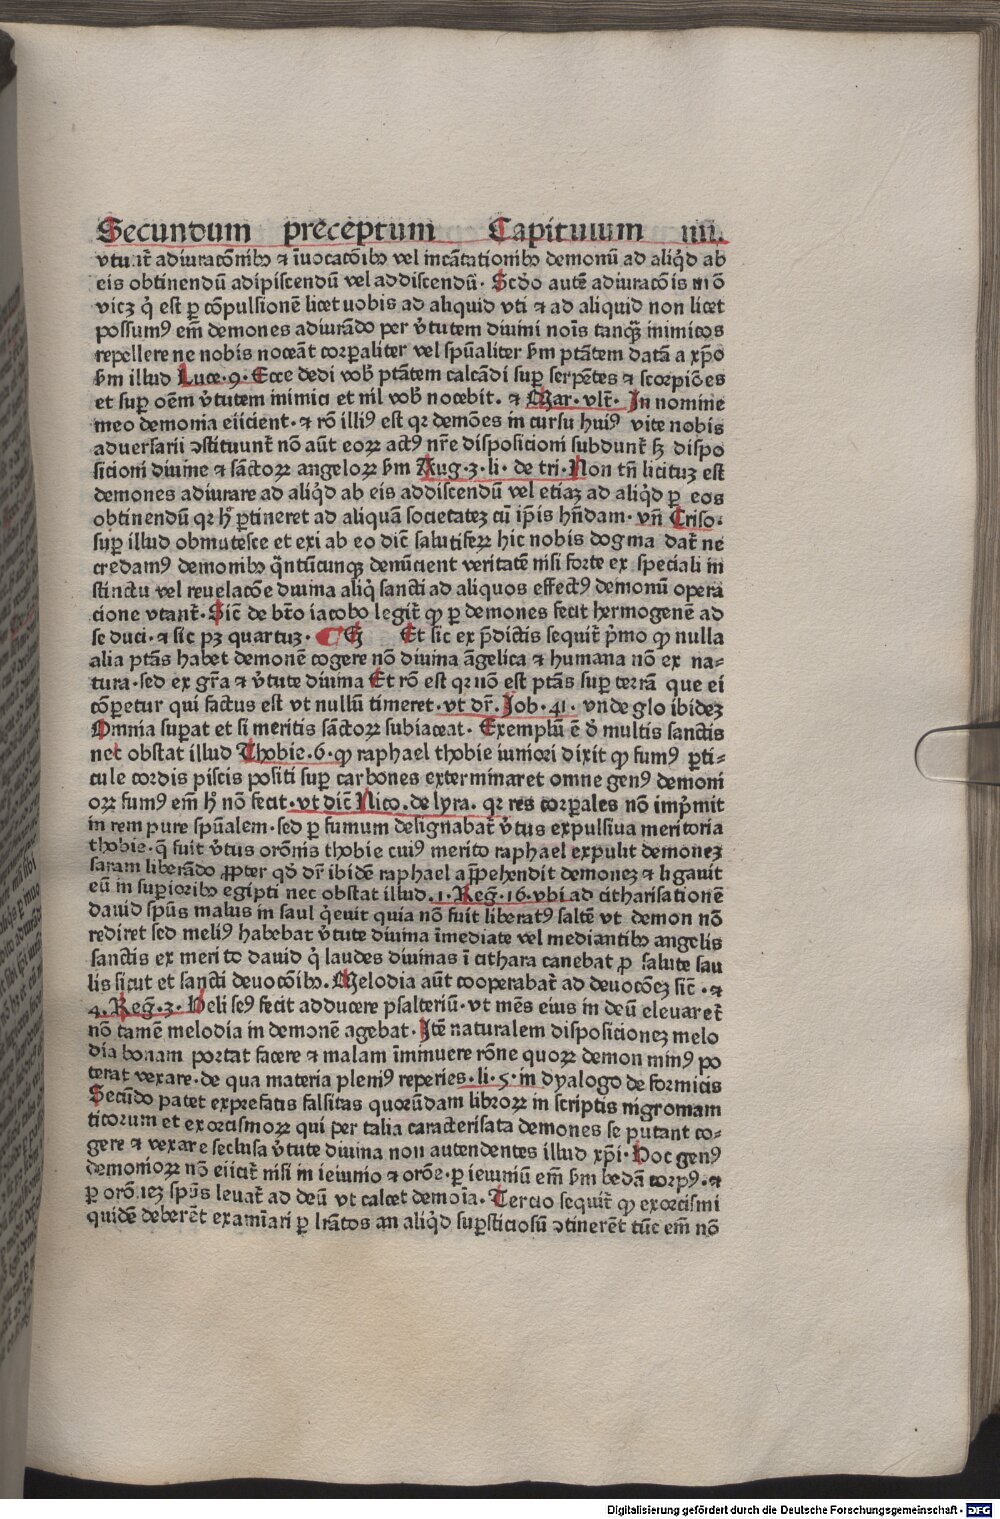 Secundum preceptum Capituıum iiii.
vtunt̄ adiuracōnibꝫ ⁊ īuocacōnibꝫ vel incātationibꝫ demonū ad aliq̇d ab
eis obtinendū adipiscendū vel addiscendū· Scd̓o autē adiuracōis mō
vicꝫ q̇ est ꝑ cōpulsionē licet nobis ad aliquid vti ⁊ ad aliquid non licet
possumꝰ em̄ demones adiurādo per v̓tutem diuini noīs tanqꝫ inimicos
repellere ne nobis noceāt corꝑaliter vel spūaliter ẜm ptātem datā a xp̄o
ẜm illud Luce·9· Ecce dedi vob̓ ptātem calcādi suꝑ serpētes ⁊ scorpiōes
et suꝑ oēm v̓tutem inimici et nil vob̓ nocebit· ⁊ Mar· vlt̄· In nomine
meo demonia eiicient·⁊ rō illiꝰ est qꝛ demōes in cursu huiꝰ vite nobis
aduersarii ↄstituunt̄ nō aūt eoꝝ actꝰ nr̄e dispositioni subdunt̄ sꝫ dispo
sitioni diuine ⁊ sāctoꝝ angeloꝝ ẜm Aug·3·li· de tri· Non tn̄ licituꝫ est
demones adiurare ad aliq̇d ab eis addiscendū vel etiaꝫ ad aliq̇d ꝑ eos
obtinendū qꝛ h̓ ꝑtineret ad aliquā societateꝫ cū ip̄is hn̄dam· vn̄ Criso·
suꝑ illud obmutesce et exi ab eo dic̄ salutiferꝝ hic nobis dogma dat̄ ne
credamꝰ demonibꝫ q̈ntūcunqꝫ denūcient veritatē nisi forte ex speciali in
stinctu vel reuelacōe diuina aliq̇ sancti ad aliquos effectꝰ demonū opera
cione vtant̄· Sic̄ de bt̄o iacobo legit̄ ꝙ ꝑ demones fecit hermogenē ad
se duci·⁊ sic pꝫ quartuꝫ· ¶ Eꝫ Et sic ex p̄dictis sequit̄ p̓mo ꝙ nulla
alia ptās habet demonē cogere nō diuina āgelica ⁊ humana nō ex na⸗
tura·sed ex gr̄a ⁊ v̓tute diuina Et rō est qꝛ nō est ptās suꝑ terrā que ei
cōꝑetur qui factus est vt nullū timeret·vt dr̄· Job·41· vnde glo ibideꝫ
Omnia suꝑat et si meritis sāctoꝝ subiaceat· Exemplū ē d̓ multis sanctis
nec obstat illud Thobie·6·ꝙ raphael thobie iuniori dixit ꝙ fumꝰ ꝑti⸗
cule cordis piscis positi suꝑ carbones exterminaret omne genꝰ demoni
oꝝ fumꝰ em̄ h̓ nō fecit·vt dic̄ Nico.de lyra. qꝛ res corꝑales nō imp̓mit
in rem pure spūalem·sed ꝑ fumum designabat̄ v̓tus expulsiua meritoria
thobie·q̄ fuit v̓tus orōnis thobie cuiꝰ merito raphael expulit demoneꝫ
saram liberādo ꝓpter qd̓ dr̄ ibidē raphael app̄hendit demoneꝫ ⁊ ligauit
eū in suꝑioribꝫ egipti nec obstat illud.1·Reg̓·16·vbi ad citharisationē
dauid spūs malus in saul q̇euit quia nō fuit liberatꝰ saltē vt demon nō
rediret sed meliꝰ habebat v̓tute diuina īmediate vel mediantibꝫ angelis
sanctis ex merito dauid q̇ laudes diuinas ī cithara canebat ꝓ salute sau
lis sicut et sancti deuocōibꝫ· Melodia aūt cooperabat̄ ad deuocōeꝫ sic̄·⁊
4.Reg̓·3· Heliseꝰ fecit adducere psalteriū·vt mēs eius in deū eleuaret̄
nō tamē melodia in demonē agebat· Itē naturalem dispositioneꝫ melo
dia bonam portat facere ⁊ malam īminuere rōne quoꝝ demon minꝰ po
terat vexare·de qua materia pleniꝰ reperies·li·5·in dyalogo de formicis
Secūdo patet ex prefatis falsitas quorūdam libroꝝ in scriptis nigromam
ticorum et exorcismoꝝ qui per talia caracterisata demones se putant co⸗
gere ⁊ vexare seclusa v̓tute diuina non autendentes illud xp̄i· Hoc genꝰ
demonioꝝ nō eiicit̄ nisi in ieiunio ⁊ orōe·ꝑ ieiuniū em̄ ẜm bedā corpꝰ·⁊
ꝑ orōneꝫ spūs leuat̄ ad deū vt calcet demoīa· Tercio sequit̄ ꝙ exorcismi
quidē deberēt examīari ꝑ lrātos an aliq̇d suꝑsticiosū ↄtinerēt tūc em̄ nō
Digitalisierung gefördert durch die Deutsche Forschungsgemeinschaft - DFG